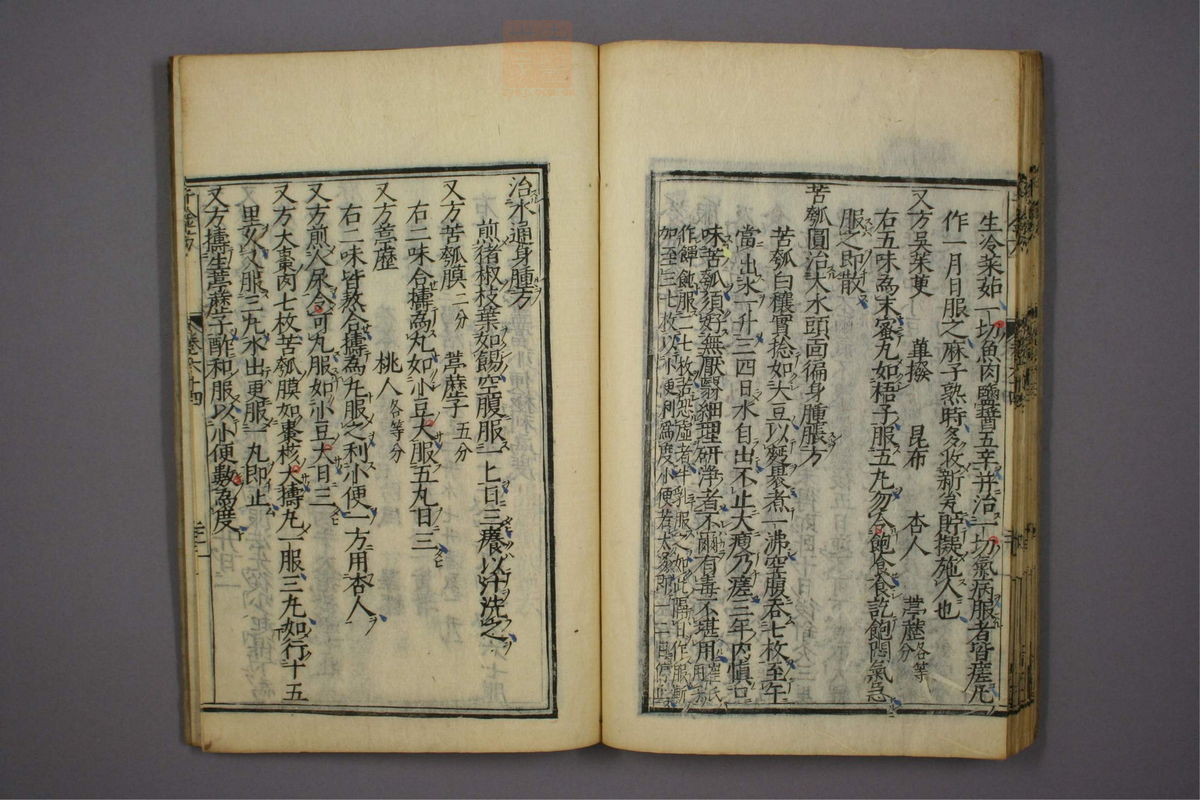 生冷菜如一切魚肉鹽醬五辛并治一切氣病服者皆瘥凡
作一月日服之麻子熟時多收新瓮貯擬施人也
又方吳茱萸 蓽撥 昆布 杏人 葶藶各等分
右五味為末蜜丸如梧子服五丸勿令飽食食訖飽悶氣急
服之即散
苦瓠圓治大水頭面徧身腫脹方
苦瓠白穰實捻如大豆以麪裹煮一沸空腹吞七枚至午
當出水一升三四日水自出不止大瘦乃瘥三年內慎口
味苦瓠須好無厭翳細理研淨者不爾有毒不堪用崔氏用子
作餛飩服二七枚若恐虛者牛乳服之如此隔日作服漸
加至三七枚以小便利為度小便若太多即一二日停止
治水通身腫方
煎猪椒枝葉如餳空腹服一匕日三癢以汁洗之
又方苦瓠膜二分 葶藶子五分
右二味合擣為丸如小豆大服五丸日三
又方葶藶 桃人各等分
右二味皆熬合擣為丸服之利小便一方用杏人
又方煎人尿令可丸服如小豆大日三
又方大棗肉七枚苦瓠膜如棗核大擣丸一服三丸如行十五
里又服三丸水出更服一丸即止
又方擣生葶藶子醋和服以小便數為度
千金方
卷六十四